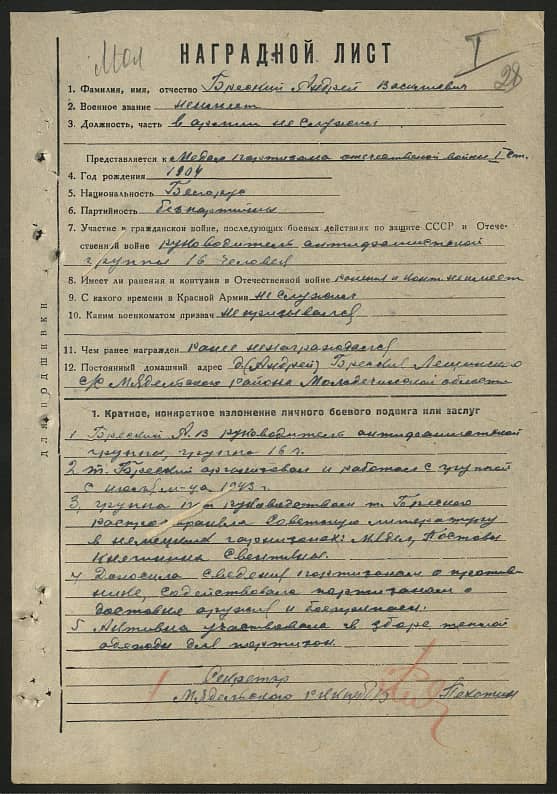 Мол
I
28
НАГРАДНОЙ ЛИСТ
1. Фамилия, имя, отчество Бреский Андрей Васильевич
2. Военное звание неимеет
3. Должность, часть в армии не служил
Представляется к Медали партизана отечественой войны I ст.
4. Год рождения 1904
5. Национальность Беларус
6. Партийность безпартийны
7. Участие в гражданской войне, последующих боевых действиях по защите СССР и Отече-
ственной войне руководитель антифашистской
группы 16 человек
8. Имеет ли ранения и контузии в Отечественной войне ранения и конт. неимеет
9. С какого времени в Красной Армии не служил
10. Каким военкоматом призван непризывался
11. Чем ранее награжден ранее ненаграждался
12. Постоянный домашний адрес д. (Андрей) Бреский
с/с Мядельского района Молодечинской области
для подшивки
1. Краткое, конкретное изложение личного боевого подвига или заслуг
1 Бреский А.В руководитель антифашистской
группы, группа 16 ч.
2 т. Бреский организовал и работал с группой
с м-ца 1943 г.
3, группа под руководством т. Бреского
распространяла Советскую литературу
в немецких гарнизонах: Мядел, Поставы
Княгинина Свентяны.
4 Доносила сведения партизанам о против-
нике, содействовала партизанам о
доставке оружия и боеприпасы.
5 Активна участвовала в зборе теплой
одежды для партизан.
Секретарь
Мядельского РККП(б)Б